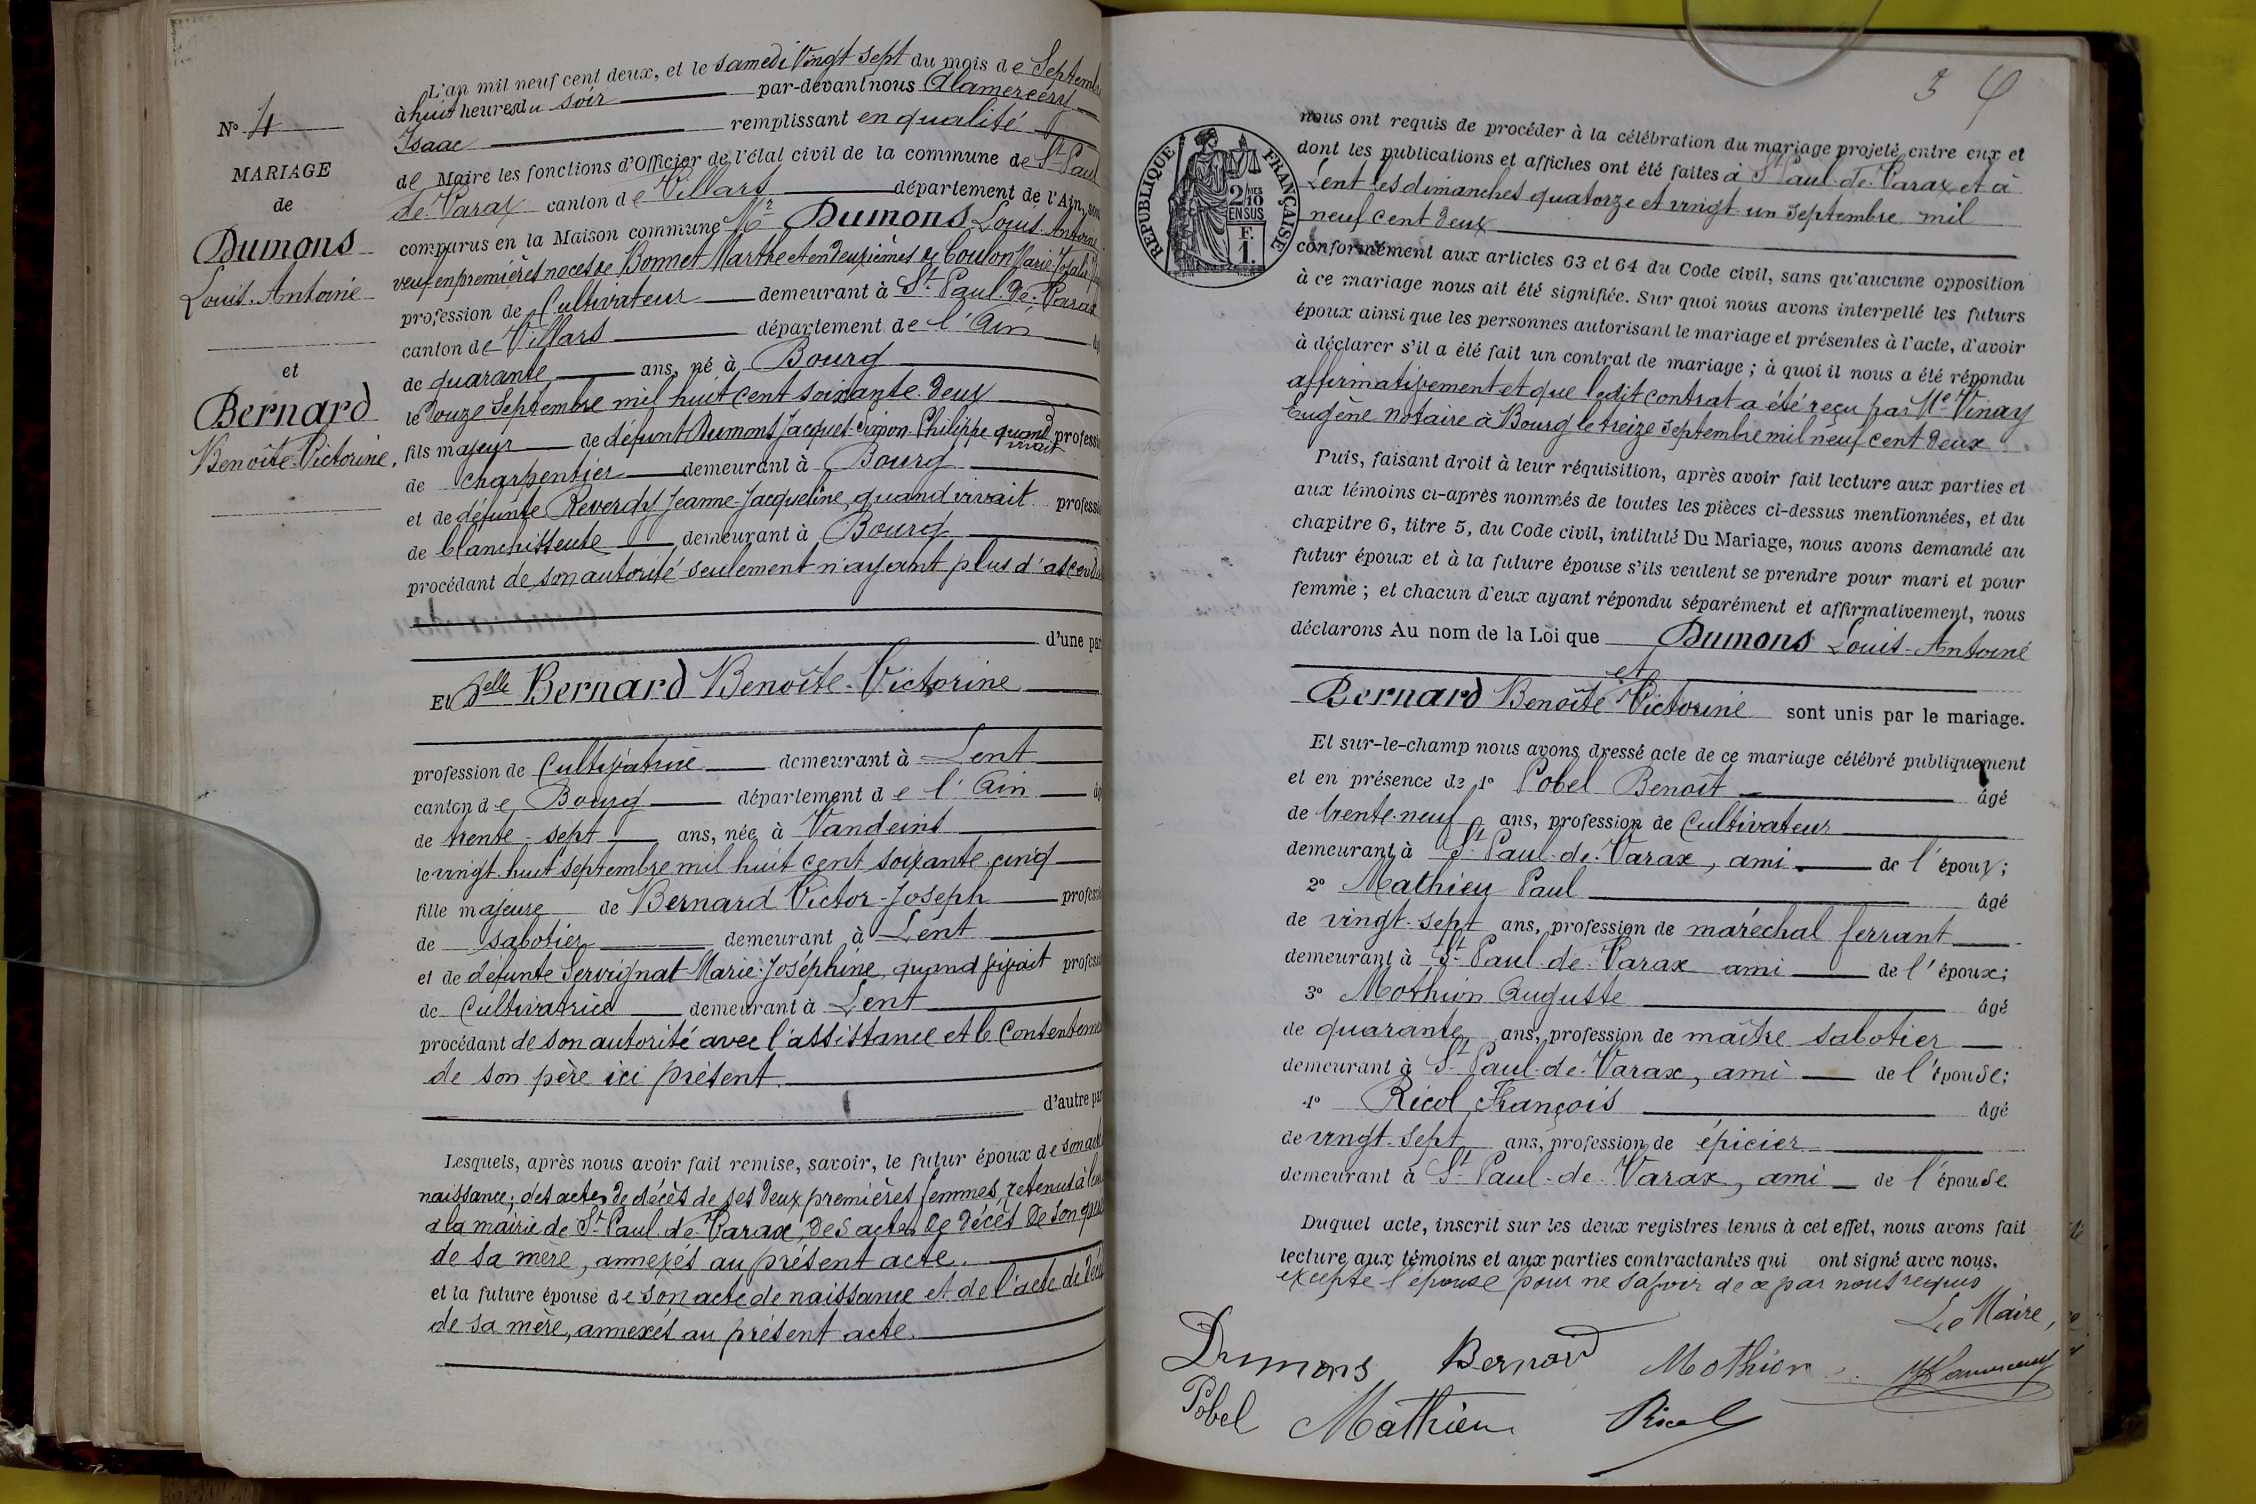 N° 4
MARIAGE
de
Dumons
Louis-Antoine
et
Bernard
Benoîte-Victorine.
L'an mil neuf cent deux, et le samedi vingt sept du mois de Septembre
à huit heures du soir par-devant nous Alamercery
Isaac remplissant en qualité
de Maire les fonctions d'Officier de l'état civil de la commune de St Paul
de Varax canton de Villars département de l'Ain, sont
comparus en la Maison commune Mr Dumons Louis-Antoine
veuf en premières noces de Bonnet Marthe et en deuxièmes de Coulon Marie
profession de Cultivateur demeurant à St Paul-de-Varax
canton de Villars département de l'Ain
de quarante ans, né à Bourg
le Douze Septembre mil huit cent soixante-deux
fils majeur de défunt Dumons Jacques-Simon-Philippe quand vivait profession
de charpentier demeurant à Bourg
et de défunte Reverdy Jeanne-Jacqueline, quand vivait profession
de blanchisseuse demeurant à Bourg
procédant de son autorité seulement n'ayant plus d'ascendants
d'une part
Et Delle Bernard Benoîte-Victorine
profession de Cultivatrice demeurant à Lent
canton de Bourg département de l'Ain
de trente-sept ans, née à Vandeins
le vingt huit septembre mil huit cent soixante cinq
fille majeure de Bernard Victor-Joseph profession
de sabotier demeurant à Lent
et de défunte Servignat Marie-Joséphine, quand vivait profession
de Cultivatrice demeurant à Lent
procédant de son autorité avec l'assistance et le consentement
de son père ici présent.
d'autre part
Lesquels, après nous avoir fait remise, savoir, le futur époux de son acte
naissance; des actes de décès de ses deux premières femmes, retenus
à la mairie de St Paul-de-Varax, des actes de décès de son père
de sa mère, annexés au présent acte.
et la future épouse de son acte de naissance et de l'acte de décès
de sa mère, annexés au présent acte.
REPUBLIQUE FRANÇAISE
2/10 EN SUS
F. 1.
nous ont requis de procéder à la célébration du mariage projeté entre eux et
dont les publications et affiches ont été faites à St Paul-de-Varax et à
Lent les dimanches quatorze et vingt-un septembre mil
neuf cent deux
conformément aux articles 63 et 64 du Code civil, sans qu'aucune opposition
à ce mariage nous ait été signifiée. Sur quoi nous avons interpellé les futurs
époux ainsi que les personnes autorisant le mariage et présentes à l'acte, d'avoir
à déclarer s'il a été fait un contrat de mariage; à quoi il nous a été répondu
affirmativement et que ledit contrat a été reçu par Me Vinay
Eugène notaire à Bourg le treize septembre mil neuf cent deux
Puis, faisant droit à leur réquisition, après avoir fait lecture aux parties et
aux témoins ci-après nommés de toutes les pièces ci-dessus mentionnées, et du
chapitre 6, titre 5, du Code civil, intitulé Du Mariage, nous avons demandé au
futur époux et à la future épouse s'ils veulent se prendre pour mari et pour
femme; et chacun d'eux ayant répondu séparément et affirmativement, nous
déclarons Au nom de la Loi que Dumons Louis-Antoine
et
Bernard Benoîte Victorine sont unis par le mariage.
Et sur-le-champ nous avons dressé acte de ce mariage célébré publiquement
et en présence de 1° Pobel Benoît âgé
de trente-neuf ans, profession de Cultivateur
demeurant à St Paul-de-Varax, ami de l'époux;
2° Mathieu Paul âgé
de vingt-sept ans, profession de maréchal ferrant
demeurant à St Paul-de-Varax ami de l'époux;
3° Mothion Auguste âgé
de quarante ans, profession de maître sabotier
demeurant à St Paul-de-Varax, ami de l'épouse;
4° Ricol François âgé
de vingt-sept ans, profession de épicier
demeurant à St Paul-de-Varax, ami de l'épouse
Duquel acte, inscrit sur les deux registres tenus à cet effet, nous avons fait
lecture aux témoins et aux parties contractantes qui ont signé avec nous.
excepté l'épouse pour ne savoir de ce par nous requis
Le Maire,
Dumons Bernard Mothion
Pobel Mathieu Ricol